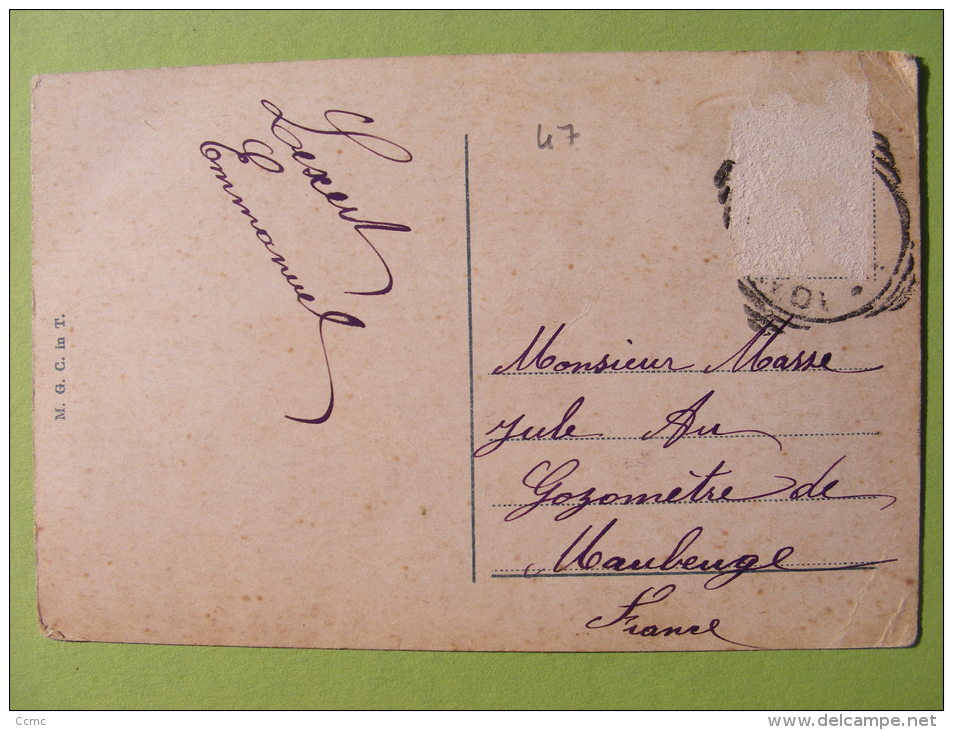 Lexert
Emmanuel
M. G. C. in T.
47
Monsieur Masse
Jule Au
Gozomètre de
Maubeuge
France
Ccmc
www.delcampe.net